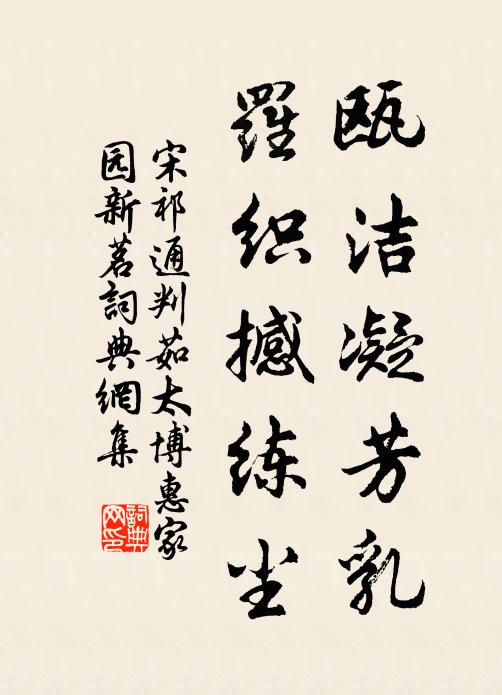 瓯洁凝芳乳
羅织撼练尘
宋祁通判茹太博惠家
园新茗詞典網集
詞典
网印